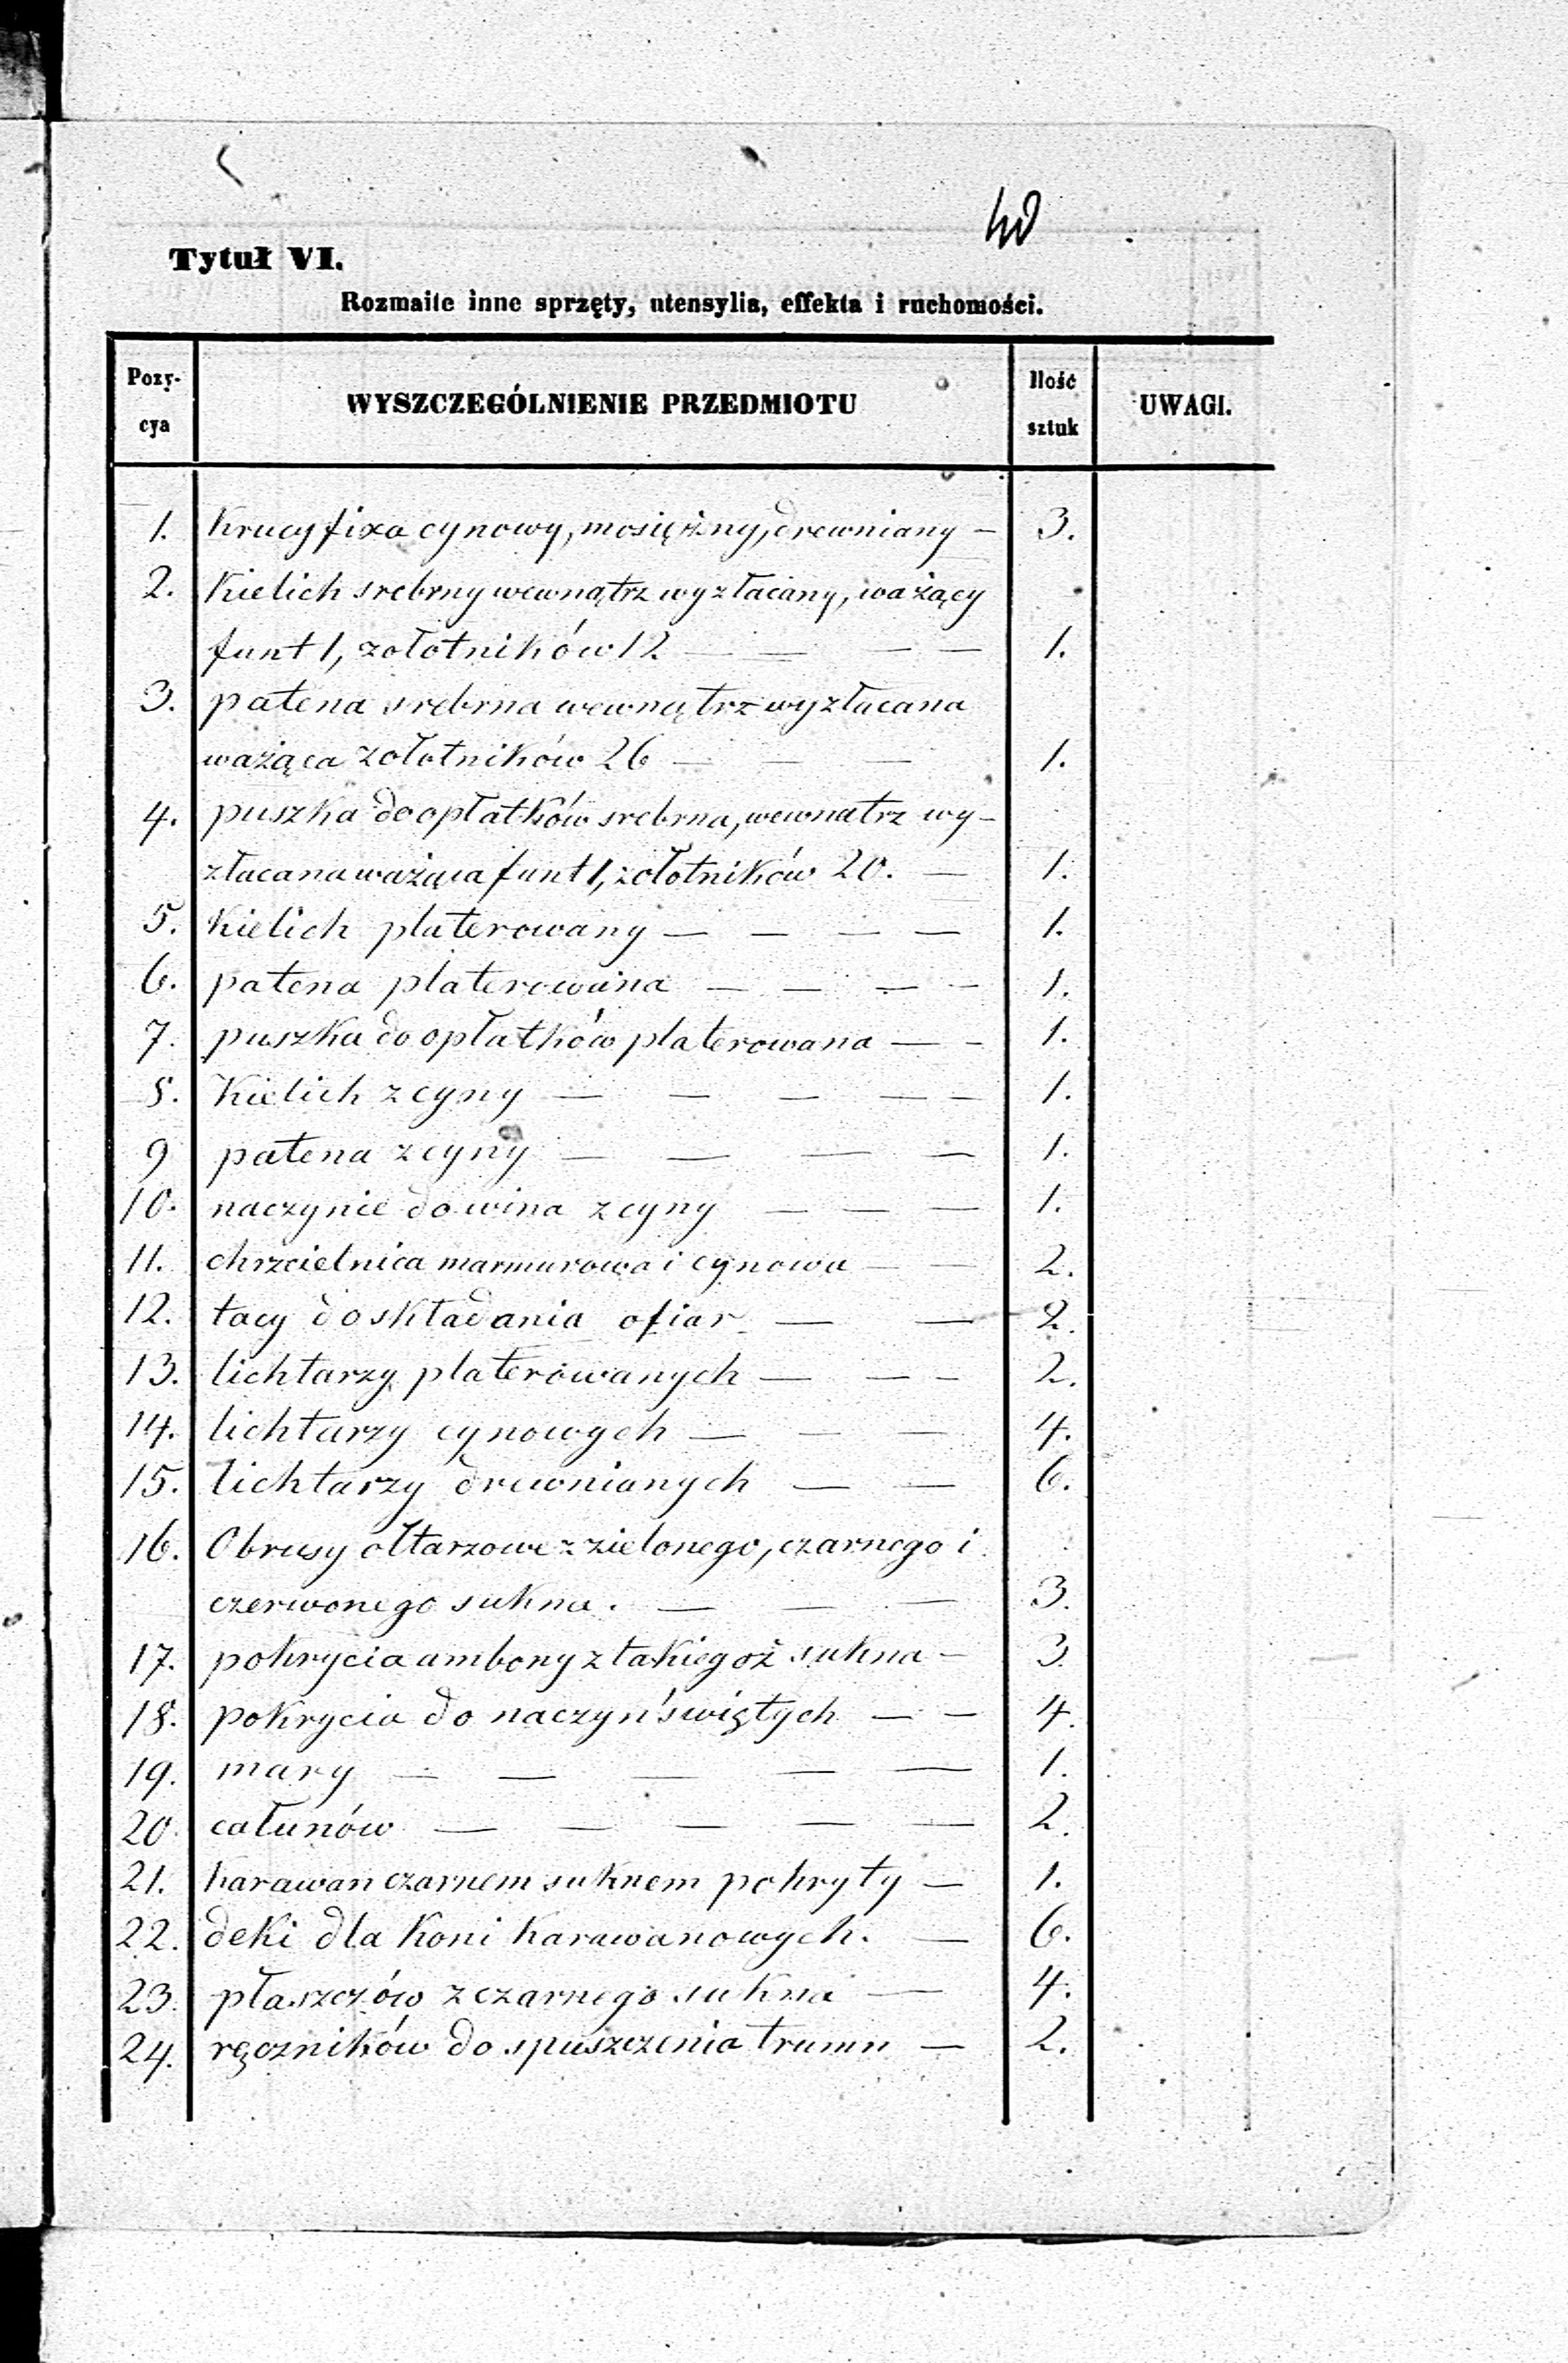 Tytuł VI.
Rozmaite inne sprzęty, utensylia, effekta i ruchomości.
Pozy-cya WYSZCZEGÓLNIENIE PRZEDMIOTU Ilość sztuk UWAGI.
1. Krucyfixa cynowy, mosiężny, drewniany — 3.
2. Kielich srebrny wewnątrz wyzłacany, ważący
funt 1, zołotników 12 — — — — 1.
3. patena srebrna wewnątrz wyzłacana
ważąca zołotników 26 — — — 1.
4. puszka do opłatków srebrna, wewnatrz wy-
złacana ważąca funt 1, zołotników 20. — 1.
5. Kielich platerowany — — — — 1.
6. patena platerowana — — — — 1.
7. puszka do opłatków platerowana — — 1.
8. Kielich z cyny — — — — — 1.
9 patena z cyny — — — — 1.
10. naczynie do wina z cyny — — — 1.
11. chrzcielnica marmurowa i cynowa — — 2.
12. tacy do składania ofiar — — 2.
13. lichtarzy platerowanych — — — 2.
14. lichtarzy cynowych — — — 4.
15. lichtarzy drewnianych — — 6.
16. Obrusy ołtarzowe z zielonego, czarnego i
czerwonego sukna. — — — 3.
17. pokrycia ambony z takiegoż sukna — 3.
18. pokrycia do naczyń świętych — — 4.
19. mary — — — — — 1.
20. całunów — — — — — 2.
21. karawan czarnem suknem pokryty — 1.
22. deki dla koni karawanowych. — 6.
23. płaszczów z czarnego sukna — 4.
24. ręczników do spuszczenia trumn — 2.